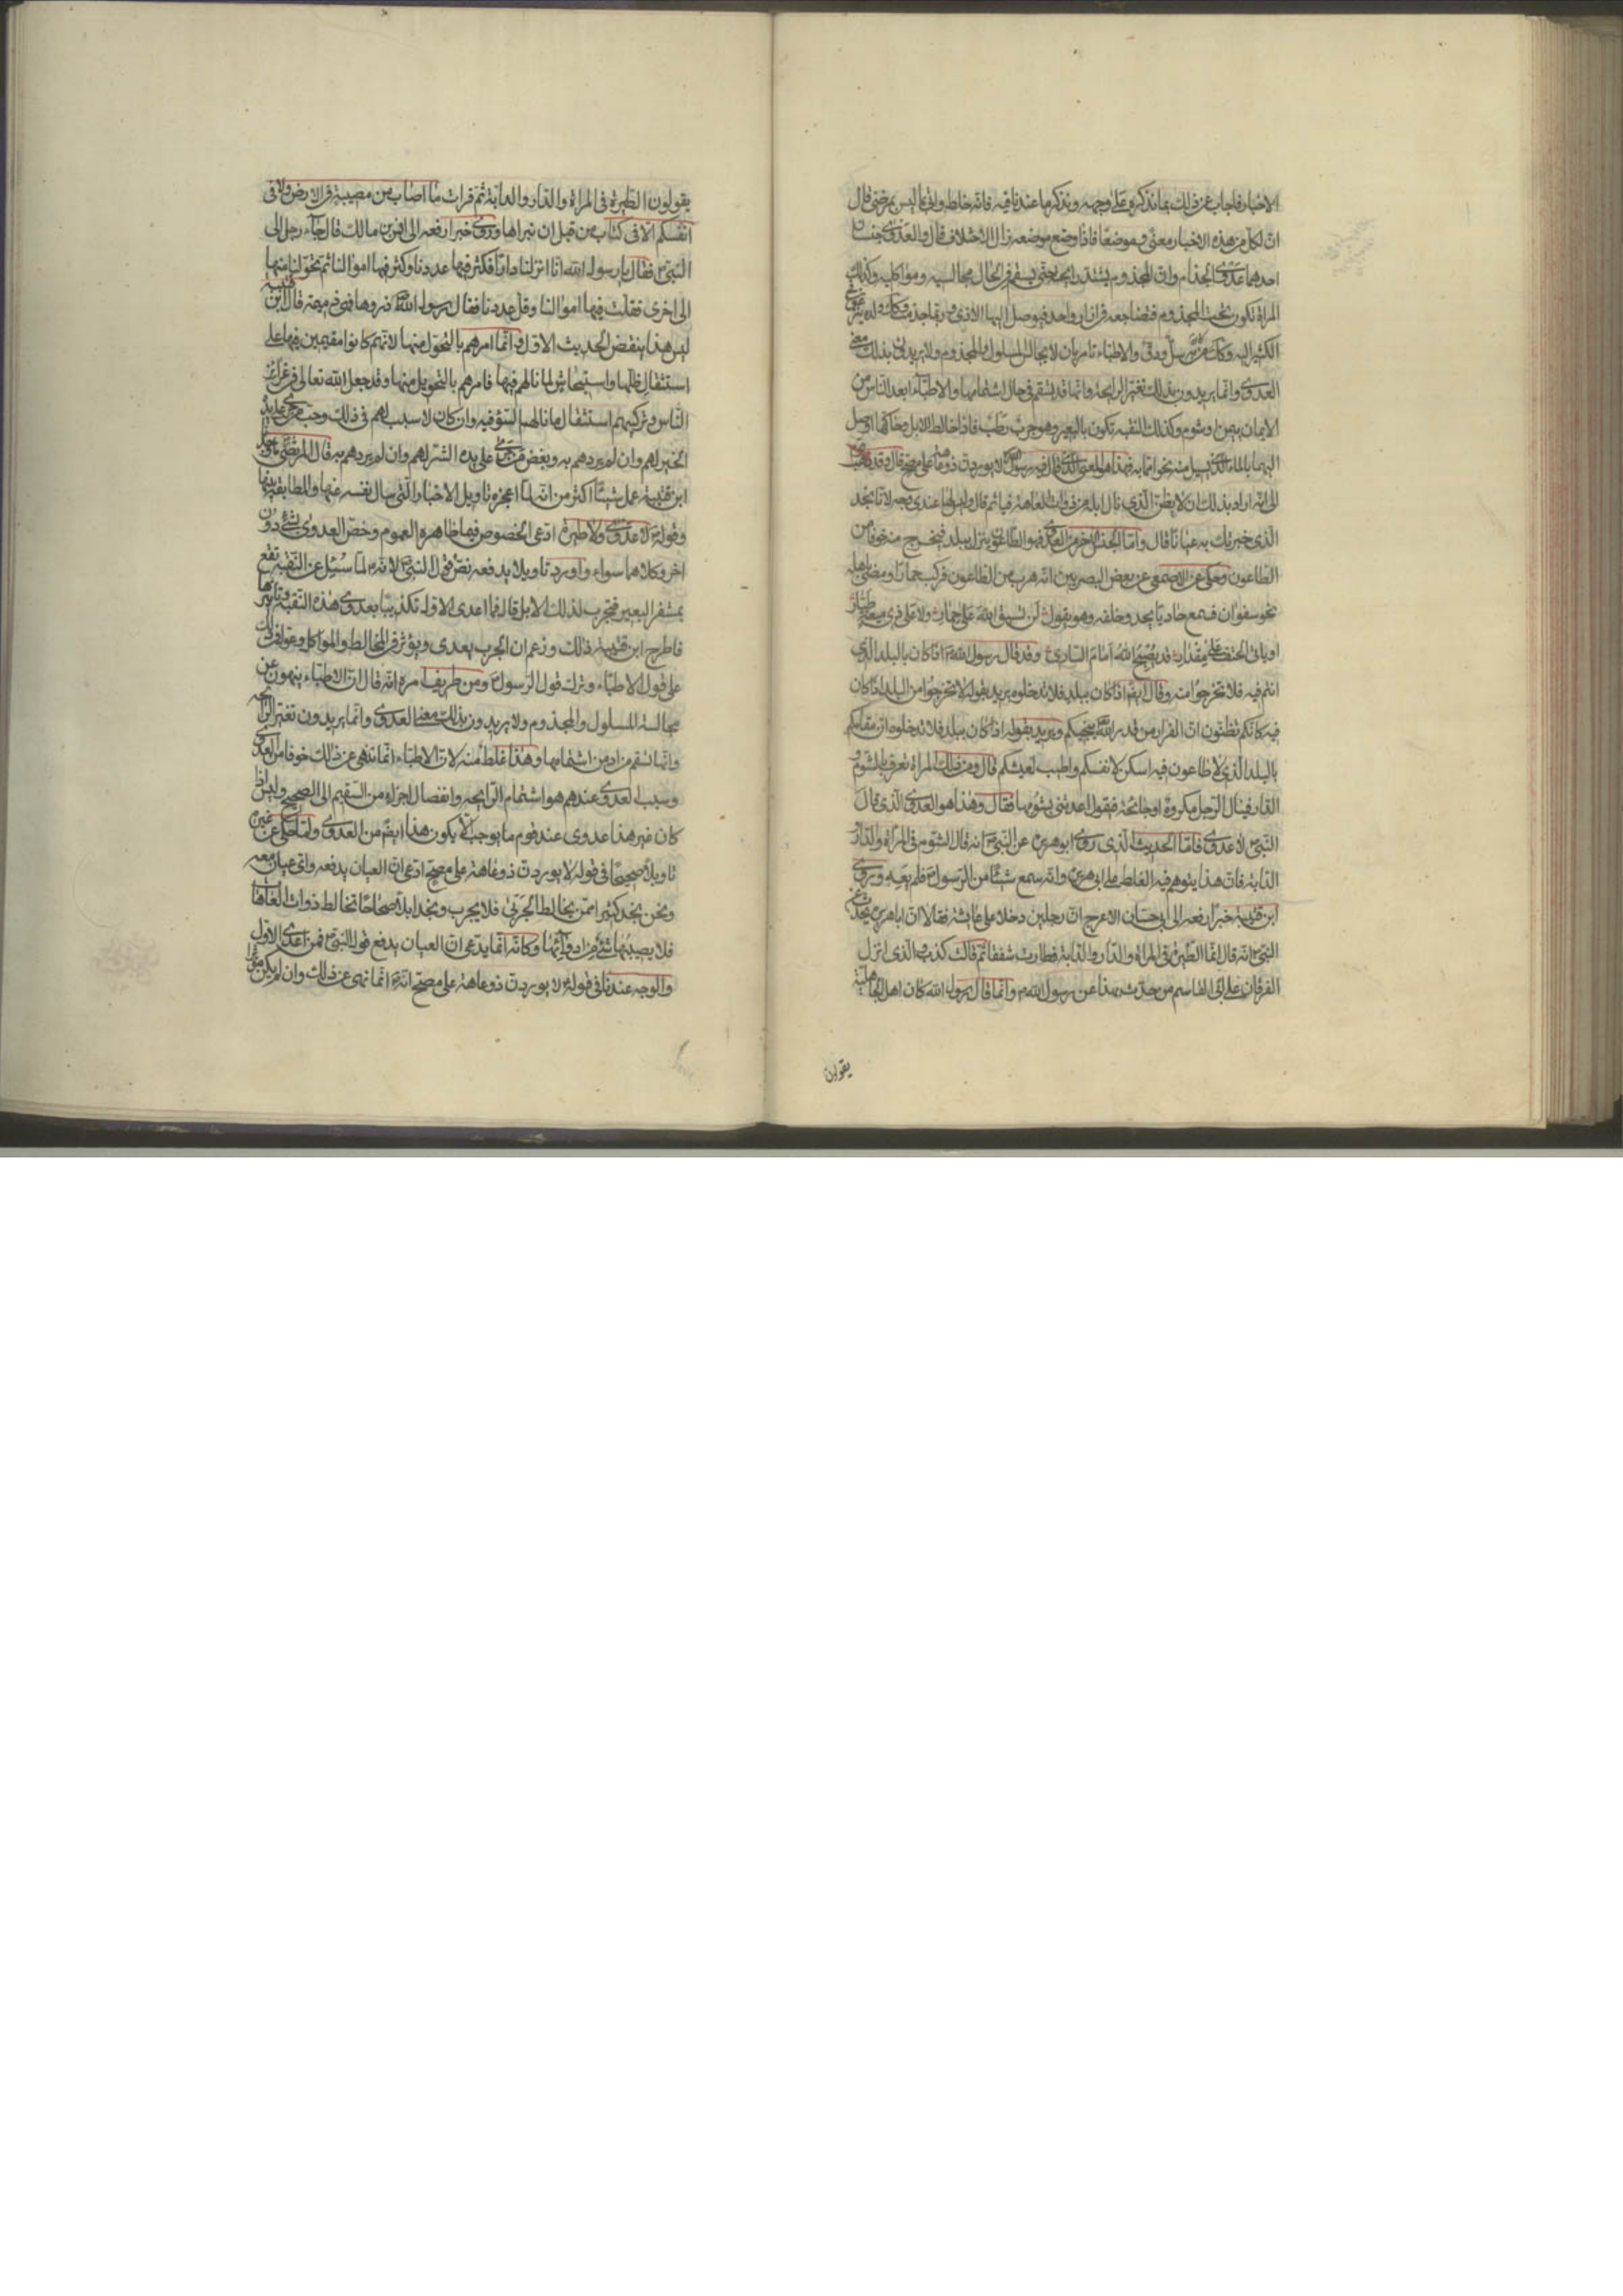 الاخبار فاجاب عن ذلك بما نذكره على وجهه ونذكر ما عندنا فيه فانه خلط واتى بما ليس بمرضى قال
ان لكل من هذه الاخبار معنى وموضعا فاذا وضع موضعه زال الاختلاف قال والعدوى جنسان
احدهما عدوى الجذام وان المجذوم يشتد رايحته حتى يسقم في الحال مجالسيه ومواكليه وكذلك
المراة تكون تحت المجذوم فتضاجعه في ازار واحد فيوصل اليها الاذى وربما جذمت وكان ولده ينزعون
الكثير اليه وكذلك من به سل ودق والاطباء تامر بان لا يجالس المسلول والمجذوم ولا يريدون بذلك معنى
العدوى وانما يريدون بذلك تغير الرايحة وانها قد يسقم في حال اشتمامها والاطباء ابعد الناس من
الايمان بيمن او شوم وكذلك النقبة تكون بالبعير وهو جرب رطب فاذا خالط الابل وحاكها اوصل
اليها بالماء الذي يسيل منه نحو ما به فهذا هو المعنى الذي قال فيه رسول الله لا يوردن ذو عاهة على مصح قال وقد ذهب قوم
الى انه اراد بذلك ان لا يظن الذي نال ابله من ذوات العاهة فياثم قال وليس لهذا عندي وجه لانا نجد
الذي خبرتك به عيانا قال واما الجنس الاخر من العدوى فهو الطاعون ينزل ببلد فيخرج منه خوفا من
الطاعون وحكى عن الاصمعى عن بعض البصريين انه هرب من الطاعون فركب حمارا ومضى باهله
نحو سفوان فسمع حاديا يحدو خلفه وهو يقول لن يسبق الله على حمار ولا على ذي ميعة طيار
او ياتى الحتف على مقدار قد يصبح الله امام السارى وقد قال رسول الله اذا كان بالبلد الذى
انتم فيه فلا تخرجوا منه وقال ايضا اذا كان ببلد فلا تدخلوه يريد بقوله لا تخرجوا من البلد اذا كان
فيه كانكم تظنون ان الفرار من قدر الله ينجيكم ويريد بقوله اذا كان ببلد فلا تدخلوه ان مقامكم
بالبلد الذى لا طاعون فيه اسكن لانفسكم واطيب لعيشكم قال ومن ذلك المراة تعرف بالشوم و
الدار فينال الرجل مكروه او جائحة فيقول اعدتنى بشومها فقال وهذا هو العدوى الذى قال
النبى لا عدوى فاما الحديث الذى روى ابو هريرة عن النبى انه قال الشوم في المراة والدار و
الدابة فان هذا يتوهم فيه الغلط على ابى هريرة وانه سمع شيئا من الرسول فلم يعه ويروى
ابن قتيبة خبرا رفعه الى ابى حسان الاعرج ان رجلين دخلا على عايشة فقالا ان ابا هريرة يحدث عن
النبى انه قال انما الطيرة في المراة والدار والدابة فطارت شفقا ثم قالت كذب والذى انزل
الفرقان على ابى القاسم من حدث بهذا عن رسول الله وانما قال رسول الله كان اهل الجاهلية
يقولون
يقولون الطيرة في المراة والدار والدابة ثم قرات ما اصاب من مصيبة في الارض ولا في
انفسكم الا في كتاب من قبل ان نبراها وروى خبرا رفعه الى انس بن مالك قال جاء رجل الى
النبى فقال يا رسول الله انا انزلنا دارا فكثر فيها عددنا وكثر فيها اموالنا ثم تحولنا منها
الى اخرى فقلت فيها اموالنا وقل عددنا فقال رسول الله ذروها فهى ذميمة قال ابن قتيبة
ليس هذا ينقض الحديث الاول وانما امرهم بالتحول منها لانهم كانوا مقيمين فيها على
استثقال ظلها واستيحاش لما نالهم فيها فامرهم بالتحويل منها وقد جعل الله تعالى في غرائز
الناس وتركيبهم استثقال ما نالهم السوء فيه وان كان لا سبب لهم في ذلك وحب من جرى على يده
الخير لهم وان لم يردهم به وبغض من جرى على يده الشر لهم وان لم يردهم به قال المرتضى ما وجدنا
ابن قتيبة عمل شيئا اكثر من انه لما اعجزه تاويل الاخبار التى سال نفسه عنها والمطابقة بينها
وقوله لا عدوى ولا طيرة ادعى الخصوص فيما ظاهره العموم وخص العدوى بشىء دون
اخر وكلاهما سواء واورد تاويلا يدفعه نص قول النبى لانه لما سئل عن النقبة تقع
بمشفر البعير فتجرب لذلك الابل قال فما اعدى الاول تكذيبا بعدوى هذه النقبة وتاثيرها
فاطرح ابن قتيبة ذلك وزعم ان الجرب يعدى ويؤثر في المخالط والمواكل وعول في ذلك
على قول الاطباء وترك قول الرسول ومن طريف امره انه قال ان الاطباء ينهون عن
مجالسة المسلول والمجذوم ولا يريدون بذلك معنى العدوى وانما يريدون تغير الرائحة
وانها تسقم من ادمن اشتمامها وهذا غلط منه لان الاطباء انما تنهى عن ذلك خوفا من العدوى
وسبب العدوى عندهم هو اشتمام الرايحة وانفصال اجزاء من السقيم الى الصحيح وليس اذا
كان غير هذا عدوى عند قوم ما يوجب ان لا يكون هذا ايضا من العدوى ولما حكى عن غيره
تاويلا صحيحا في قوله لا يوردن ذو عاهة على مصح ادعى ان العيان يدفعه واى عيان معه
ونحن نجد كثيرا ممن يخالط الجربى فلا يجرب ونجد ابلا صحاحا تخالط ذوات العاهات
فلا يصيبها شىء من ادوائها وكانه انما يدعى ان العيان يدفع قول النبى فمن اعدى الاول
والوجه عندنا في قوله لا يوردن ذو عاهة على مصح انه انما نهى عن ذلك وان لم يكن مؤثرا